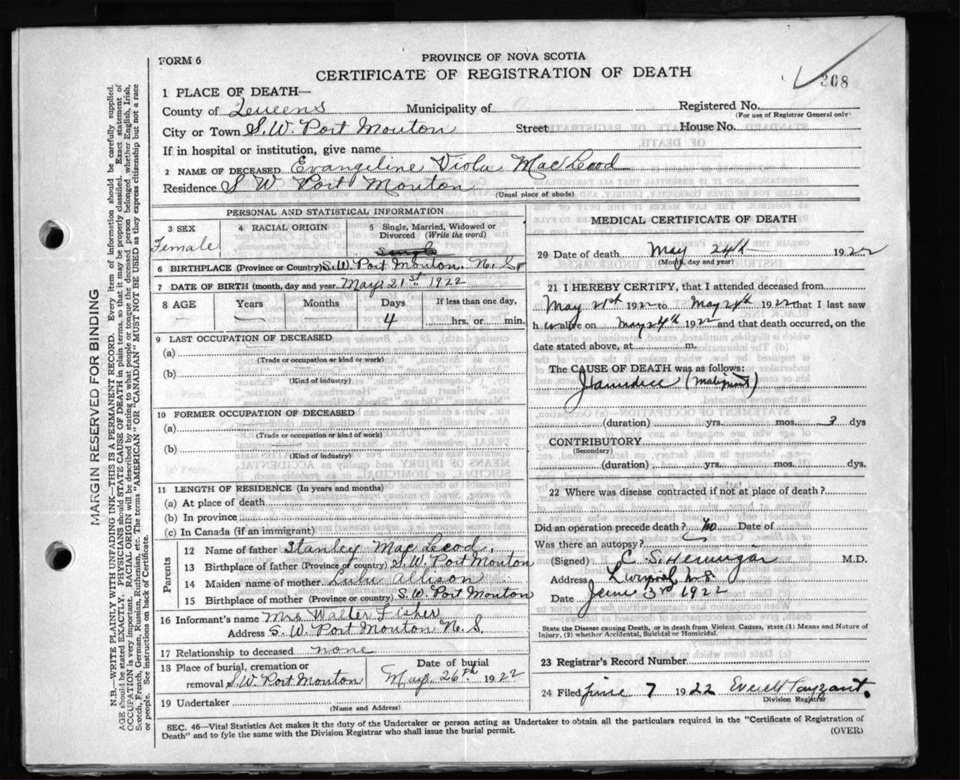 FORM 6
PROVINCE OF NOVA SCOTIA
CERTIFICATE OF REGISTRATION OF DEATH
368
1 PLACE OF DEATH—
County of Queens Municipality of Registered No.
(For use of Registrar General only)
City or Town S.W. Port Mouton Street House No.
If in hospital or institution, give name
2 NAME OF DECEASED Evangeline Viola MacLeod
Residence S W Port Mouton
(Usual place of abode)
PERSONAL AND STATISTICAL INFORMATION
3 SEX 4 RACIAL ORIGIN 5 Single, Married, Widowed or Divorced (Write the word)
Female Single
6 BIRTHPLACE (Province or Country) S.W. Port Mouton N.S.
7 DATE OF BIRTH (month, day and year) May 21st 1922
8 AGE Years Months Days If less than one day,
4 hrs. or min.
9 LAST OCCUPATION OF DECEASED
(a)
(Trade or occupation or kind or work)
(b)
(Kind of industry)
10 FORMER OCCUPATION OF DECEASED
(a)
(Trade or occupation or kind or work)
(b)
(Kind of industry)
11 LENGTH OF RESIDENCE (In years and months)
(a) At place of death
(b) In province
(c) In Canada (if an immigrant)
Parents
12 Name of father Stanley MacLeod
13 Birthplace of father (Province or country) S.W. Port Mouton
14 Maiden name of mother Lulu Allison
15 Birthplace of mother (Province or country) S.W. Port Mouton
16 Informant's name Mrs Walter Fisher
Address S.W. Port Mouton N.S.
17 Relationship to deceased none
18 Place of burial, cremation or removal S.W. Port Mouton
Date of burial May 26th 1922
19 Undertaker
(Name and Address)
MEDICAL CERTIFICATE OF DEATH
20 Date of death May 24th 1922
(Month, day and year)
21 I HEREBY CERTIFY, that I attended deceased from
May 21st 1922 to May 24th 1922 that I last saw
h alive on May 24th 1922 and that death occurred, on the
date stated above, at m.
The CAUSE OF DEATH was as follows:
Jaundice (Malignant)
(duration) yrs. mos. 3 dys
CONTRIBUTORY
(Secondary)
(duration) yrs. mos. dys.
22 Where was disease contracted if not at place of death?
Did an operation precede death? No Date of
Was there an autopsy?
(Signed) C. S. Hennigar M.D.
Address Liverpool N.S.
Date June 3rd 1922
State the Disease causing Death, or in death from Violent Causes, state (1) Means and Nature of Injury, (2) whether Accidental, Suicidal or Homicidal.
23 Registrar's Record Number
24 Filed June 7 1922 Everett Payzant.
Division Registrar
SEC. 46—Vital Statistics Act makes it the duty of the Undertaker or person acting as Undertaker to obtain all the particulars required in the "Certificate of Registration of
Death" and to fyle the same with the Division Registrar who shall issue the burial permit.
(OVER)
MARGIN RESERVED FOR BINDING
N.B.—WRITE PLAINLY WITH UNFADING INK—THIS IS A PERMANENT RECORD. Every item of information should be carefully supplied.
AGE should be stated EXACTLY. PHYSICIANS should STATE CAUSE OF DEATH in plain terms, so that it may be properly classified. Exact statement of
OCCUPATION is very important. RACIAL ORIGIN will be described by stating to what people or tongue the deceased person belonged, whether English, Irish,
Scotch, French, German, Russian, Ruthenian, etc. The terms "AMERICAN" OR "CANADIAN" MUST NOT BE USED as they express citizenship but not a race
or people. See instructions on back of Certificate.